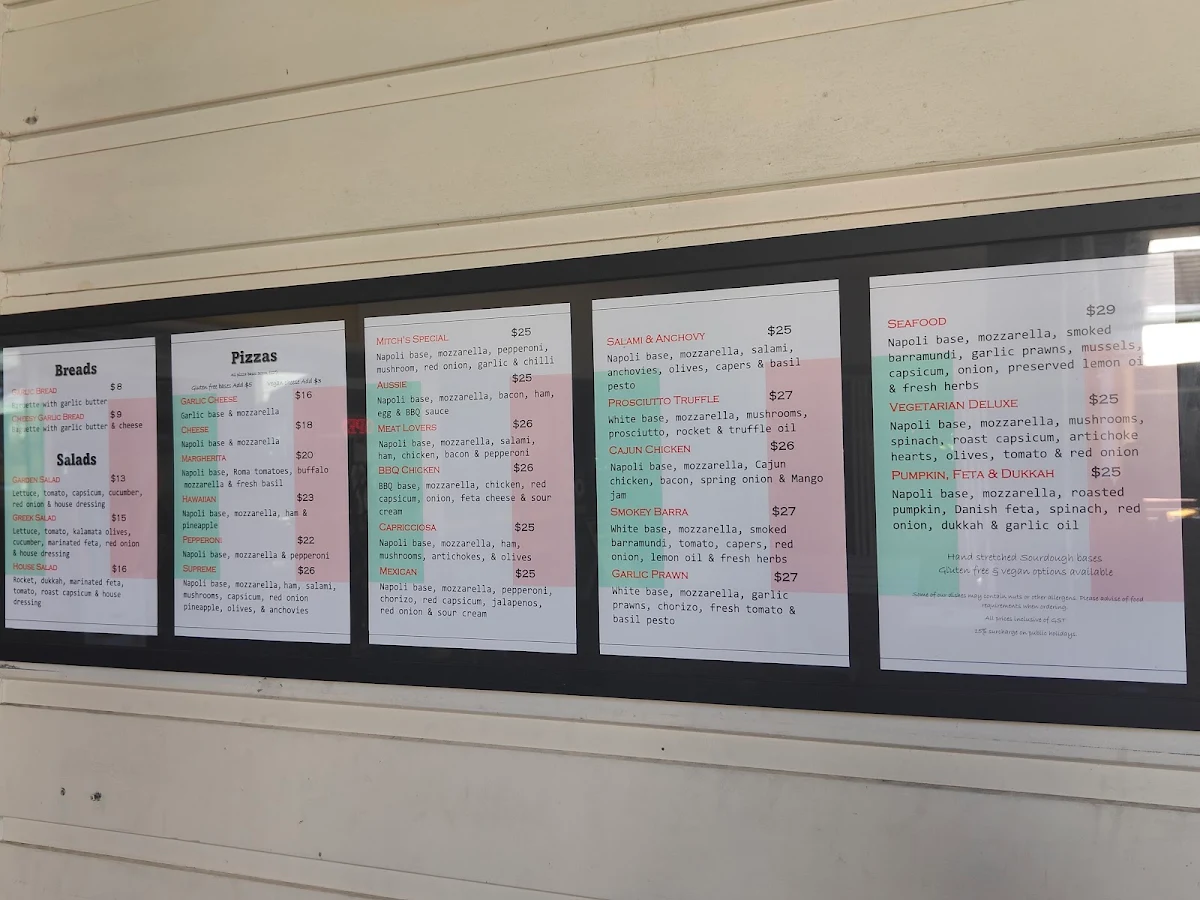 Breads
GARLIC BREAD $8
Baguette with garlic butter
CHEESY GARLIC BREAD $9
Baguette with garlic butter & cheese
Salads
GARDEN SALAD $13
Lettuce, tomato, capsicum, cucumber,
red onion & house dressing
GREEK SALAD $15
Lettuce, tomato, kalamata olives,
cucumber, marinated feta, red onion
& house dressing
HOUSE SALAD $16
Rocket, dukkah, marinated feta,
tomato, roast capsicum & house
dressing
Pizzas
Gluten free bases Add $5 Add $3
GARLIC CHEESE $16
Garlic base & mozzarella
CHEESE $18
Napoli base & mozzarella
MARGHERITA $20
Napoli base, Roma tomatoes, buffalo
mozzarella & fresh basil
HAWAIIAN $23
Napoli base, mozzarella, ham &
pineapple
PEPPERONI $22
Napoli base, mozzarella & pepperoni
SUPREME $26
Napoli base, mozzarella, ham, salami,
mushrooms, capsicum, red onion
pineapple, olives, & anchovies
MITCH'S SPECIAL $25
Napoli base, mozzarella, pepperoni,
mushroom, red onion, garlic & chilli
AUSSIE $25
Napoli base, mozzarella, bacon, ham,
egg & BBQ sauce
MEAT LOVERS $26
Napoli base, mozzarella, salami,
ham, chicken, bacon & pepperoni
BBQ CHICKEN $26
BBQ base, mozzarella, chicken, red
capsicum, onion, feta cheese & sour
cream
CAPRICCIOSA $25
Napoli base, mozzarella, ham,
mushrooms, artichokes, & olives
MEXICAN $25
Napoli base, mozzarella, pepperoni,
chorizo, red capsicum, jalapenos,
red onion & sour cream
SALAMI & ANCHOVY $25
Napoli base, mozzarella, salami,
anchovies, olives, capers & basil
pesto
PROSCIUTTO TRUFFLE $27
White base, mozzarella, mushrooms,
prosciutto, rocket & truffle oil
CAJUN CHICKEN $26
Napoli base, mozzarella, Cajun
chicken, bacon, spring onion & Mango
jam
SMOKEY BARRA $27
White base, mozzarella, smoked
barramundi, tomato, capers, red
onion, lemon oil & fresh herbs
GARLIC PRAWN $27
White base, mozzarella, garlic
prawns, chorizo, fresh tomato &
basil pesto
SEAFOOD $29
Napoli base, mozzarella, smoked
barramundi, garlic prawns, mussels,
capsicum, onion, preserved lemon oil
& fresh herbs
VEGETARIAN DELUXE $25
Napoli base, mozzarella, mushrooms,
spinach, roast capsicum, artichoke
hearts, olives, tomato & red onion
PUMPKIN, FETA & DUKKAH $25
Napoli base, mozzarella, roasted
pumpkin, Danish feta, spinach, red
onion, dukkah & garlic oil
Hand stretched Sourdough bases
Gluten free & vegan options available
Some of our dishes may contain nuts or other allergens. Please advise of food
requirements when ordering.
All prices inclusive of GST
15% surcharge on public holidays